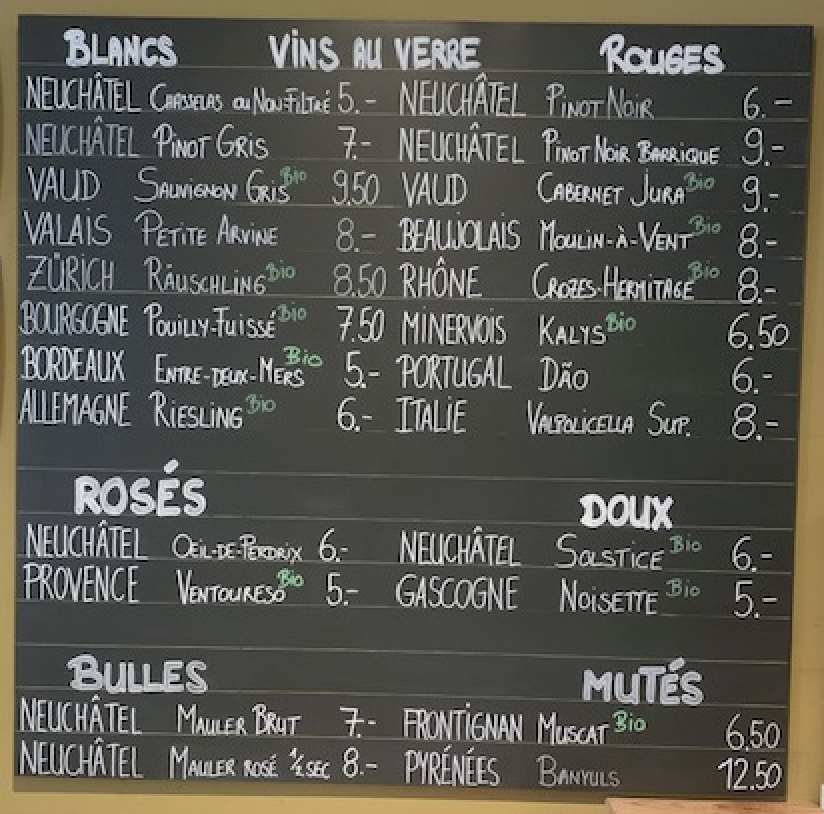 BLANCS VINS AU VERRE ROUGES
NEUCHÂTEL CHASSELAS OU NON FILTRÉ 5.- NEUCHÂTEL PINOT NOIR 6.-
NEUCHÂTEL PINOT GRIS 7.- NEUCHÂTEL PINOT NOIR BARRIQUE 9.-
VAUD SAUVIGNON GRIS Bio 9.50 VAUD CABERNET JURA Bio 9.-
VALAIS PETITE ARVINE 8.- BEAUJOLAIS MOULIN-À-VENT Bio 8.-
ZÜRICH RÄUSCHLING Bio 8.50 RHÔNE CROZES-HERMITAGE Bio 8.-
BOURGOGNE POUILLY-FUISSÉ Bio 7.50 MINERVOIS KALYS Bio 6.50
BORDEAUX ENTRE-DEUX-MERS Bio 5.- PORTUGAL DÃO 6.-
ALLEMAGNE RIESLING Bio 6.- ITALIE VALPOLICELLA SUP. 8.-
ROSÉS DOUX
NEUCHÂTEL OEIL-DE-PERDRIX 6.- NEUCHÂTEL SOLSTICE Bio 6.-
PROVENCE VENTOURESO Bio 5.- GASCOGNE NOISETTE Bio 5.-
BULLES MUTÉS
NEUCHÂTEL MAULER BRUT 7.- FRONTIGNAN MUSCAT Bio 6,50
NEUCHÂTEL MAULER ROSÉ ½ SEC 8.- PYRÉNÉES BANYULS 12.50